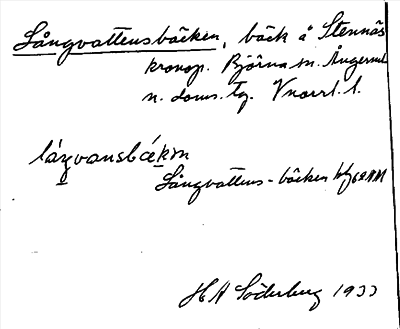 Långvattensbäcken, bäck å Stennäs
kronop. Björna sn. Ångerml
n. doms. tg. Vnorrl. l.
låŋvansbækɳ
Långvattens-bäcken
H A Söderberg 1933